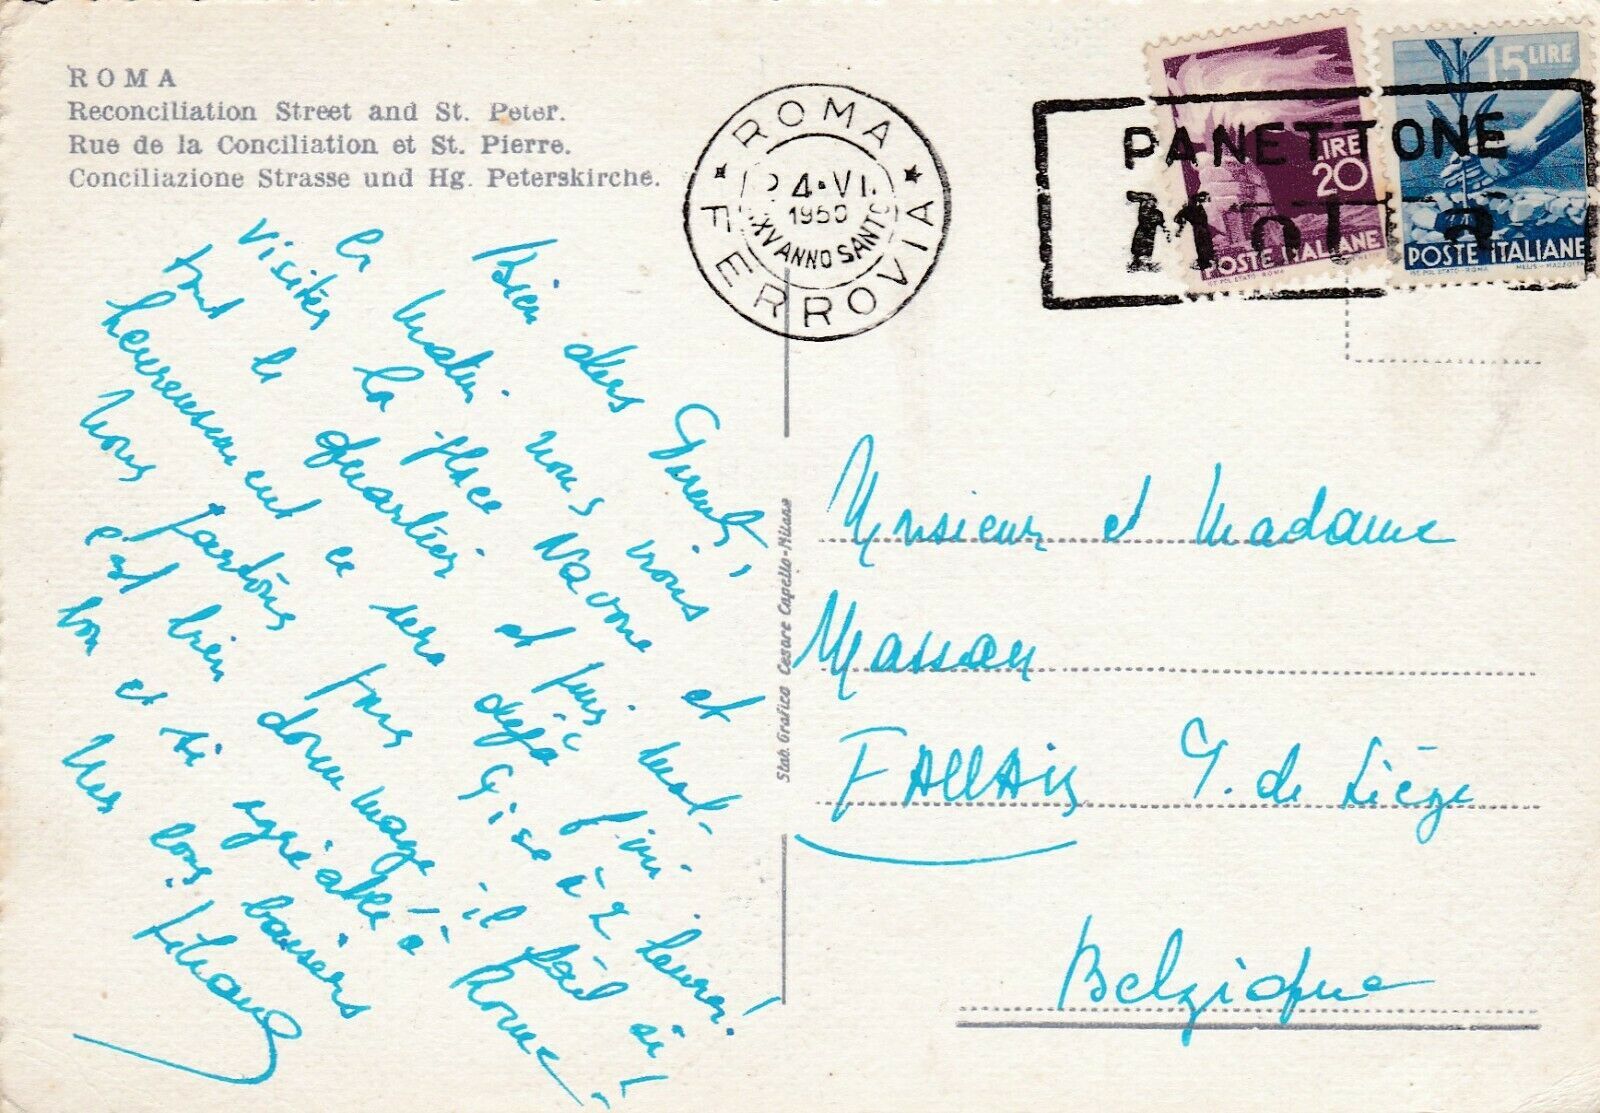 ROMA
Reconciliation Street and St. Peter.
Rue de la Conciliation et St. Pierre.
Conciliazione Strasse und Hg. Peterskirche.
ROMA
4·VI.
1950
ANNO SANTO
FERROVIA
PANETTONE
LIRE
20
POSTE ITALIANE
15 LIRE
POSTE ITALIANE
Bien chers Parents,
Ce matin nous nous
visités la place Navone et
tout le quartier et puis mal-
heureusement ce sera déjà fini.
Nous partons pour Pise à 2 heures!
c'est bien dommage il fait si
bon et si agréable à Rome!
Nos bons baisers
Liliane
Stab. Grafico Cesare Capello-Milano
Monsieur et Madame
Massau
FALLAIS P. de Liège
Belgique